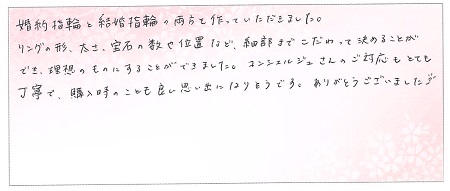 婚約指輪と結婚指輪の両方を作っていただきました。
リングの形、太さ、宝石の数や位置など、細部までこだわって決めることが
でき、理想のものにすることができました。コンシェルジュさんのご対応もとても
丁寧で、購入時のことも良い思い出になりそうです。ありがとうございました